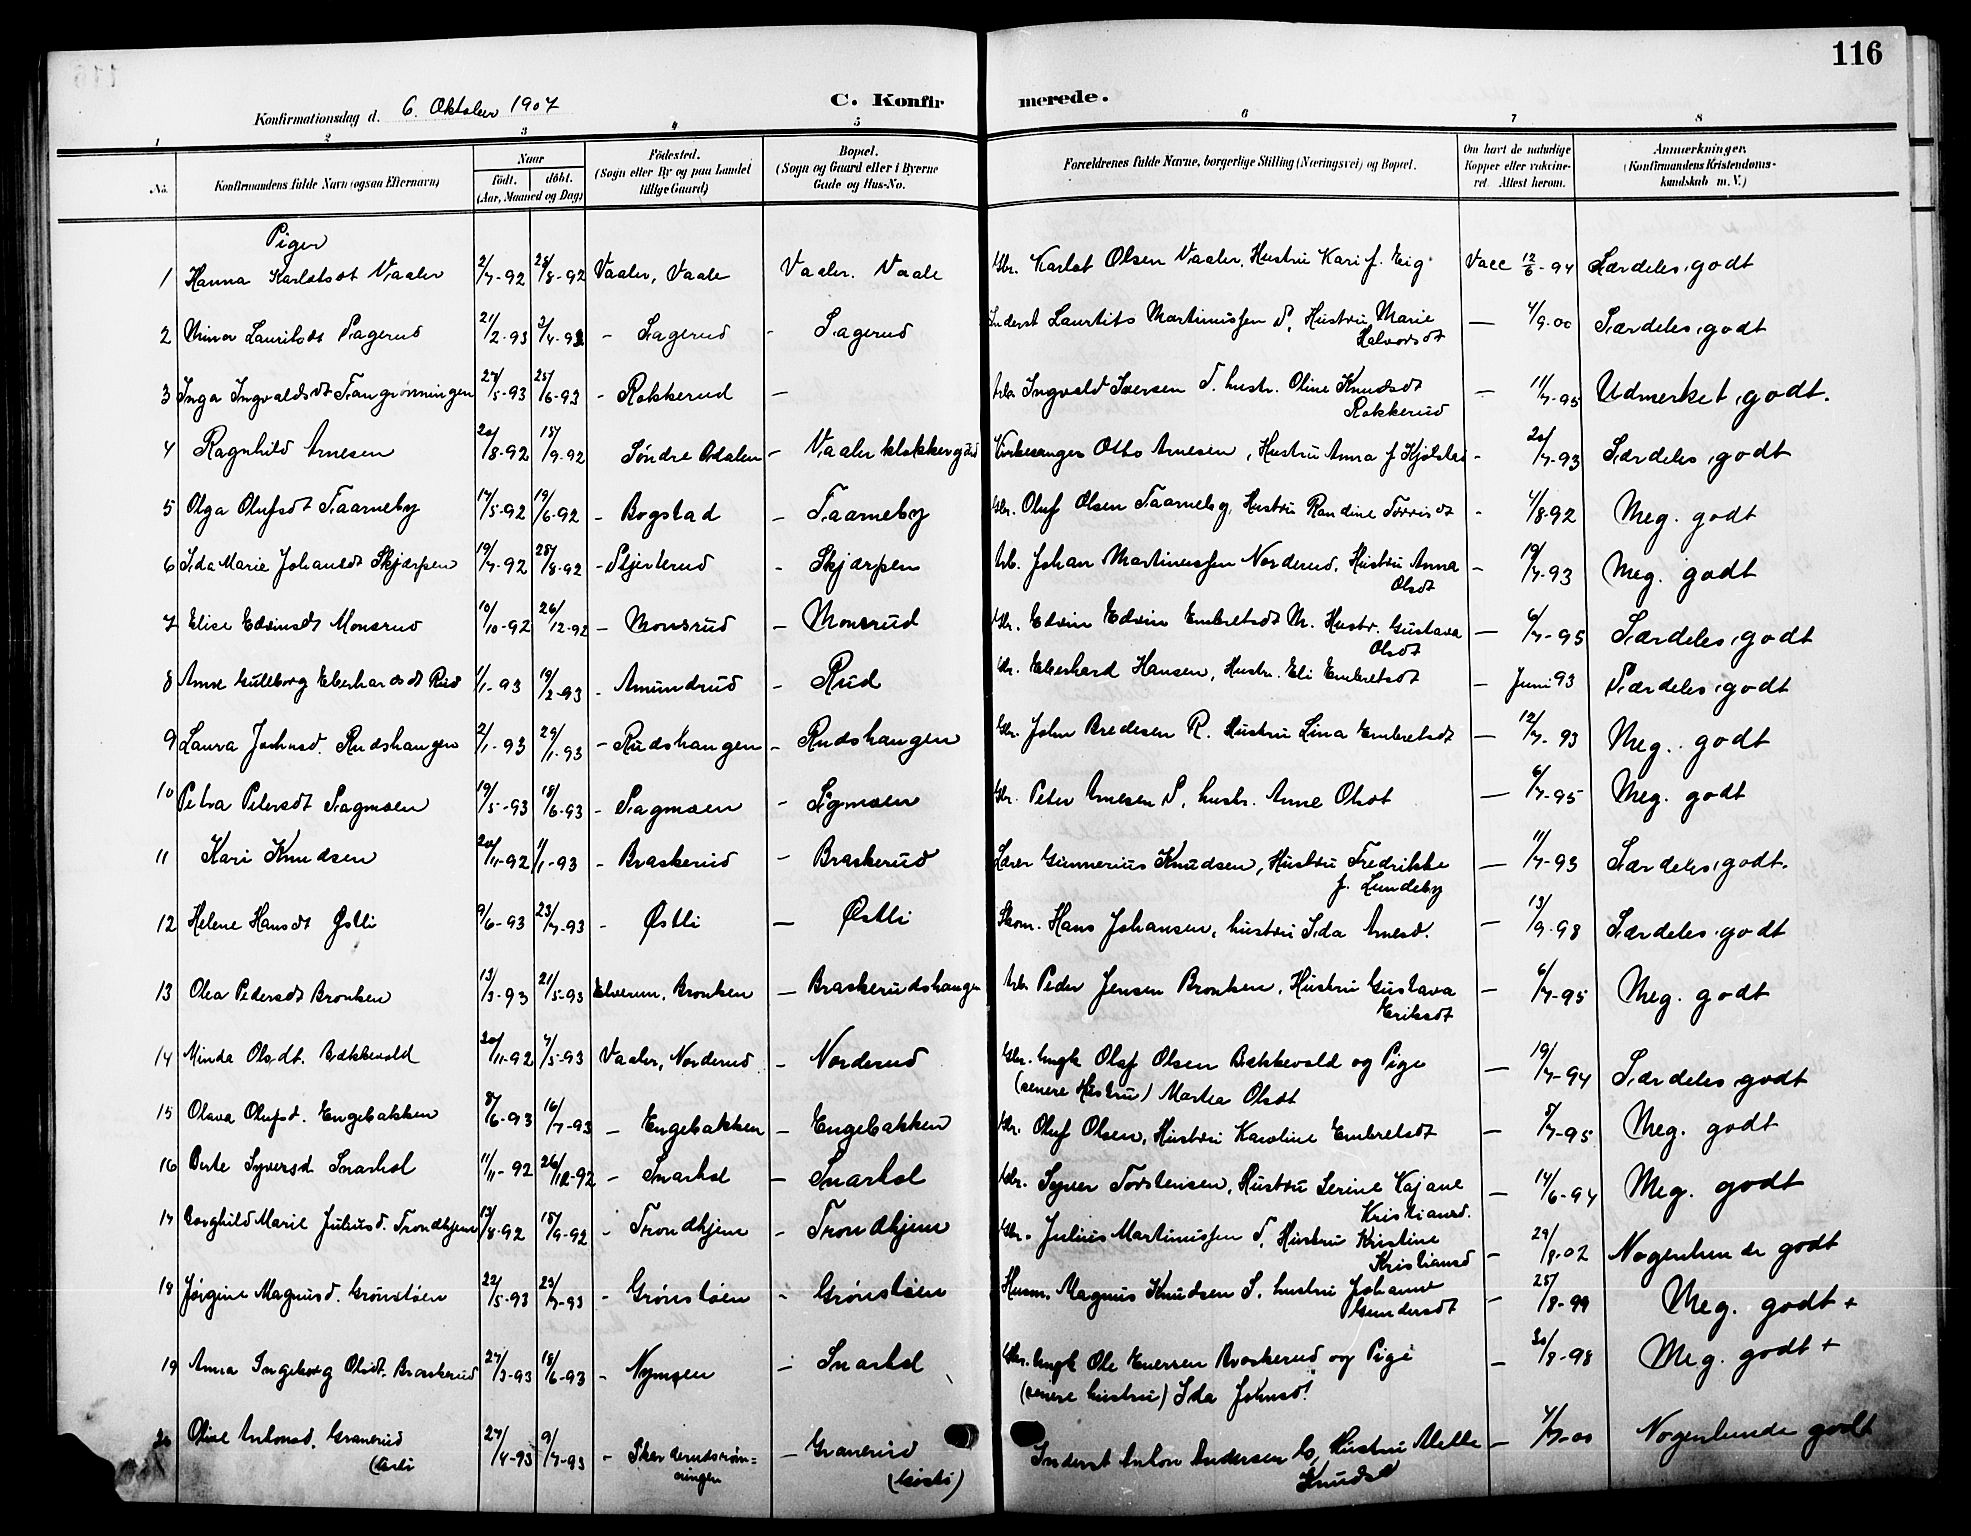 116
Konfirmationsdag d. 6. Oktober 1907
C. Konfirmerede.
1 2 3 4 5 6 7 8
No.
Konfirmandens fulde Navn (ogsaa Efternavn)
Naar
födt. döbt.
(Aar, Maaned og Dag)
Födested.
(Sogn eller By og paa Landet
tillige Gaard)
Bopæl.
(Sogn og Gaard eller i Byerne
Gade og Hus-No.
Forældrenes fulde Navne, borgerlige Stilling (Næringsvei) og Bopæl.
Om havt de naturlige
Kopper eller vakcine-
ret Attest herom.
Anmærkninger.
(Konfirmandens Kristendoms-
kundskab m. V.)
Piger
1 Hanna Karlstsdt Vaaler 2/7-92 28/8-92 Vaaler, Vaale Vaaler. Vaale Gbr. Karlst Olsen Vaaler, Hustru Kari f. Eig Vacc 12/6-94 Særdeles godt
2 Lauritsdt Sagerud 21/2-93 3/4-93 - Sagerud - Sagerud Inderst Lauritits Martinussen S, Hustru Marie — 4/9-00 Særdeles godt
Halvorsdt
3 Inga Ingvaldsdt 27/5-93 25/6-93 - Rokkerud — Arb. Ingvald Iversen T. hustr. Oline Knudsdt — 11/7-95 Udmerket godt.
Rokkerud
4 Ragnhild Arnesen 20/8-92 18/9-92 Søndre Odalen - Vaaler klokkergård Kirkesanger Otto Arnesen, Hustru Anna f Kjølstad - 20/7-93 Særdeles godt
5 Olga Olufsdt Taarneby 17/5-92 19/6-92 - Bogstad - Taarneby Gbr. Oluf Olsen Taarneby, Hustru Randine - 4/8-92 Meg. godt
6 Ida Marie Johansdt Skjærpen 19/7-92 28/8-92 - Stjerterud - Skjærpen Arb. Johan Martinussen Norderud, Hustru Anna - 19/7-93 Meg. godt
Olsdt
7 Elise Edvinsdt Monsrud 10/10-92 26/12-92 - Monsrud - Monsrud Gbr. Edvin Edvin Embretsdt M. Hustr. Gustava — 6/7-95 Særdeles godt
Olsdt
8 Anne Gulborg Eberhardsdt Rud 1/1-93 19/2-93 - Amundrud - Rud Gbr. Eberhard Hansen, Hustr. Eli Embretsdt — Juni 93 Særdeles godt
9 Laura Johnsd. Rudshangen 2/1-93 29/1-93 - Rudshangen - Rudshangen Gbr. John Bredesen R. Hustru Lina Embretsdt — 12/7-93 Meg. godt
10 Petra Petersdt Sagmoen 19/5-93 18/6-93 - Sagmoen - Sagmoen Gbr. Peter Arnesen S, hustr. Anne Olsdt — 6/7-95 Meg. godt
11 Kari Knudsen 20/11-92 1/1-93 - Braskerud - Braskerud Lærer Gunnerius Knudsen, Hustru Fredrikke — 11/7-93 Særdeles godt.
f. Lundeby
12 Helene Hansdt Østli 9/6-93 23/7-93 - Østli — Østli Skom. Hans Johansen, hustru Ida Arnesd. — 13/9-98 Særdeles godt
13 Olea Pedersdt Bronken 13/3-93 21/5-93 Elverum, Bronken — Braskerudshangen Arb. Peder Jensen Bronken, Hustru Gustava — 6/7-95 Meg. godt
Eriksdt
14 Minda Olsdt. Bækkevold 20/11-92 7/5-93 Vaaler, Norderud - Norderud Gbr. Ungk Olaf Olsen Bækkevold og Pige — 19/7-94 Særdeles godt
(senere Hustru) Martea Olsdt
15 Olava Olufsd. Engebakken 8/6-93 16/7-93 - Engebakken - Engebakken Gbr. Oluf Olsen, Hustru Karoline Embretsdt — 5/7-95 Meg. godt
16 Berte Syversd. Snarhol 11/11-92 26/12-92 - Snarhol - Snarhol Gbr. Syver Torstensen, Hustru Serine Kajane — 14/6-94 Meg. godt
Kristiansd.
17 Borghild Marie Juliusd. Trondhjem 13/8-92 18/9-92 - Trondhjem - Trondhjem Gbr. Julius Martinussen T, Hustru Kristine — 29/8-02 Nogenlunde godt
Kristiansd
18 Jørgine Magnusd. Grønstøen 22/5-93 23/7-93 - Grønstøen - Grønstøen Husm. Magnus Knudsen S. hustru Johanne — 25/8-99 Meg. godt +
Gundersdt
19 Anna Ingeborg Olsdt. Braskerud 27/3-93 18/6-93 - Nymoen - Snarhol Gbr. Ungk Ole Enersen Braskerud og Pige — 30/8-98 Meg. godt +
(senere hustru) Ida Johnsdt
20 Oline Antonsd. Granerud 27/4-93 9/7-93 - - Granerud Inderst Anton Andersen G, Hustru Mette — 4/7-00 Nogenlunde godt
Knudsd